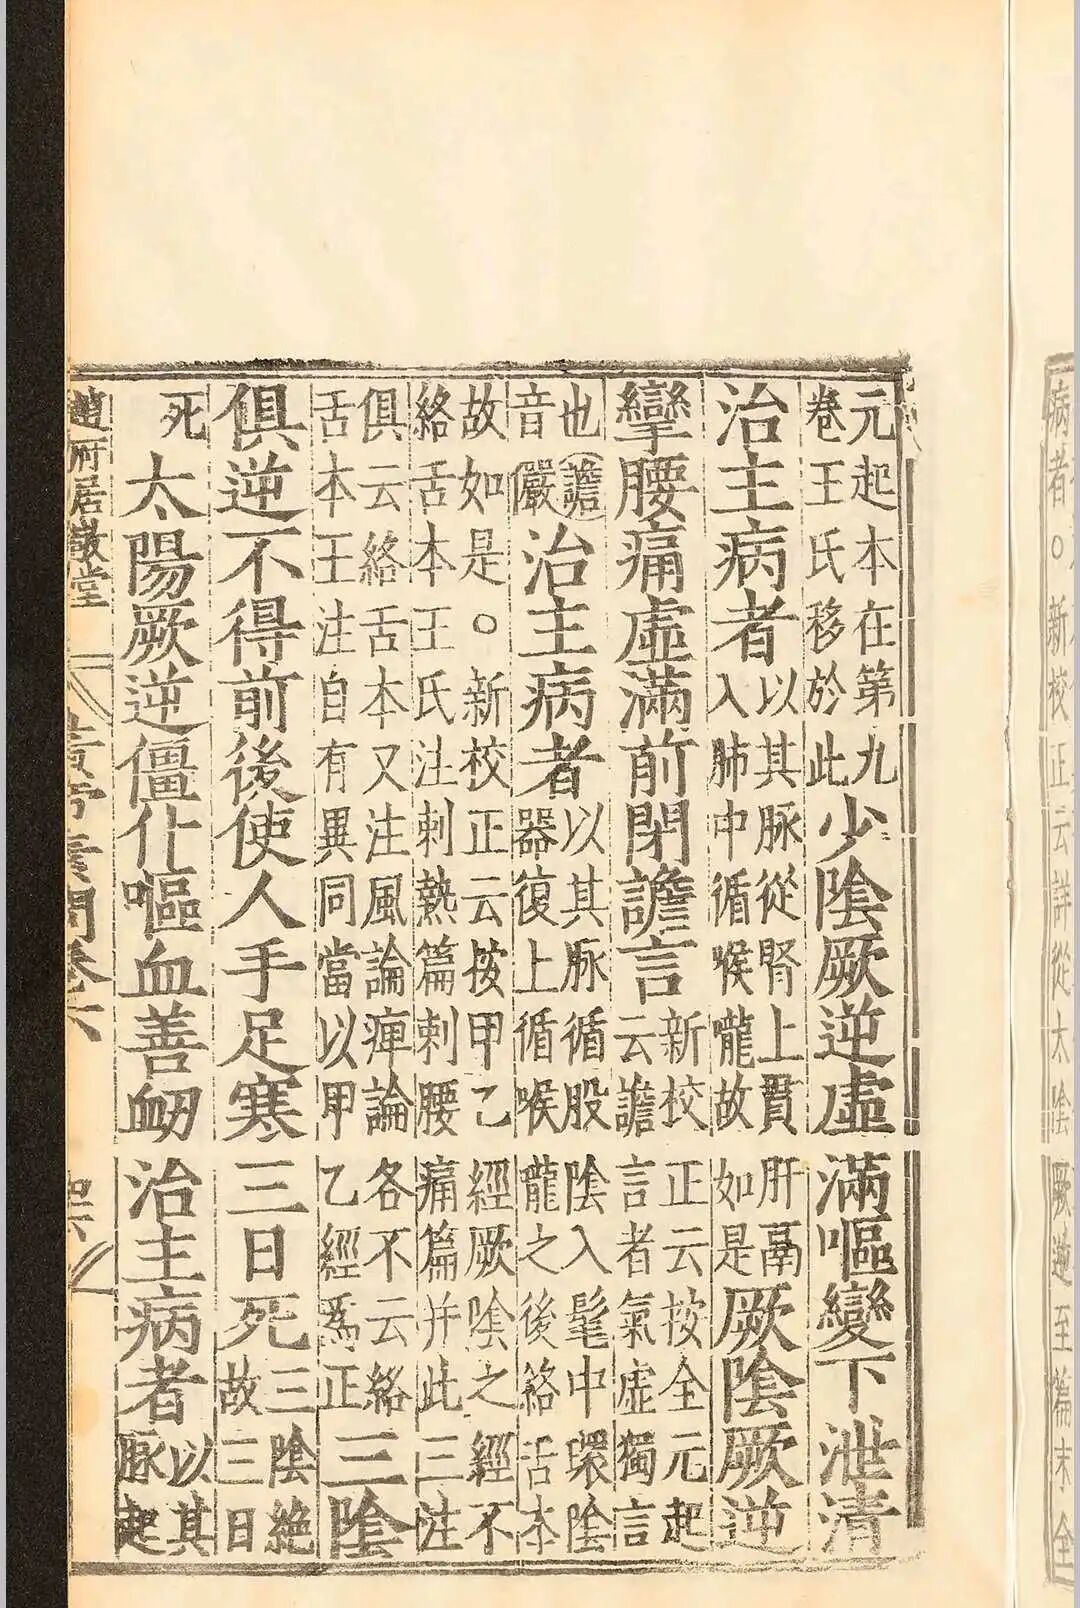 病者○新校正云詳從太陰厥逆至篇末全
元起本在第九卷王氏移於此少陰厥逆虛滿嘔變下泄清
治主病者以其脈從腎上貫肝鬲入肺中循喉嚨故如是厥陰厥逆
攣腰痛虛滿前閉譫言新校正云按全元起云譫言者氣虛獨言
也譫音嚴治主病者以其脈循股陰入髦中環陰器復上循喉嚨之後絡舌本
故如是○新校正云按甲乙經厥陰之經不絡舌本王氏注刺熱篇刺腰痛篇并此三注
俱云絡舌本又注風論痺論各不云絡舌本王注自有異同當以甲乙經爲正三陰
俱逆不得前後使人手足寒三日死三陰絕故三日
死太陽厥逆僵仆嘔血善衄治主病者以其脈起
趙府居敬堂 黃帝素問卷六